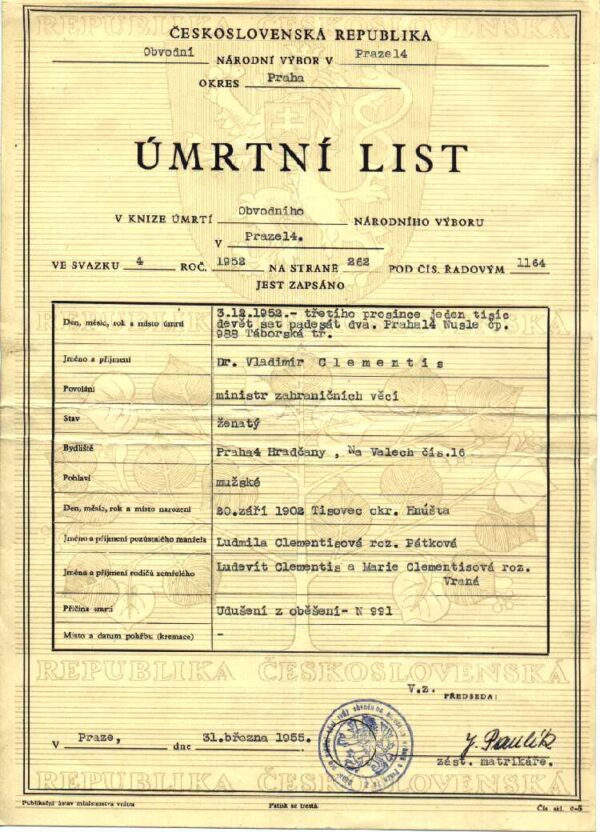 ČESKOSLOVENSKÁ REPUBLIKA
Obvodní NÁRODNÍ VÝBOR V Praze14
OKRES Praha
ÚMRTNÍ LIST
V KNIZE ÚMRTÍ Obvodního NÁRODNÍHO VÝBORU
V Praze14.
VE SVAZKU 4 ROČ. 1952 NA STRANĚ 262 POD ČÍS. ŘADOVÝM 1164
JEST ZAPSÁNO
REPUBLIKA ČESKOSLOVENSKÁ
Den, měsíc, rok a místo úmrtí 3.12.1952.- třetího prosince jeden tisíc
devět set padesát dva. Praha14 Nusle čp.
988 Táborská tř.
Jméno a příjmení Dr. Vladimír Clementis
Povolání ministr zahraničních věcí
Stav ženatý
Bydliště Praha4 Hradčany , Na Valech čís.16
Pohlaví mužské
Den, měsíc, rok a místo narození 20.září 1902 Tisovec okr. Hnúšťa
Jméno a příjmení pozůstalého manžela Ludmila Clementisová roz. Pátková
Jména a příjmení rodičů zemřelého Ludevít Clementis a Marie Clementisová roz.
Vraná
Příčina smrti Udušení z oběšení- N 991
Místo a datum pohřbu (kremace) -
REPUBLIKA ČESKOSLOVENSKÁ
V.z. PŘEDSEDA:
V Praze, dne 31.března 1955.
J. Paulík
zást. matrikáře.
REPUBLIKA ČESKOSLOVENSKÁ
Publikační ústav ministerstva vnitra Padělání se trestá Čís. skl.